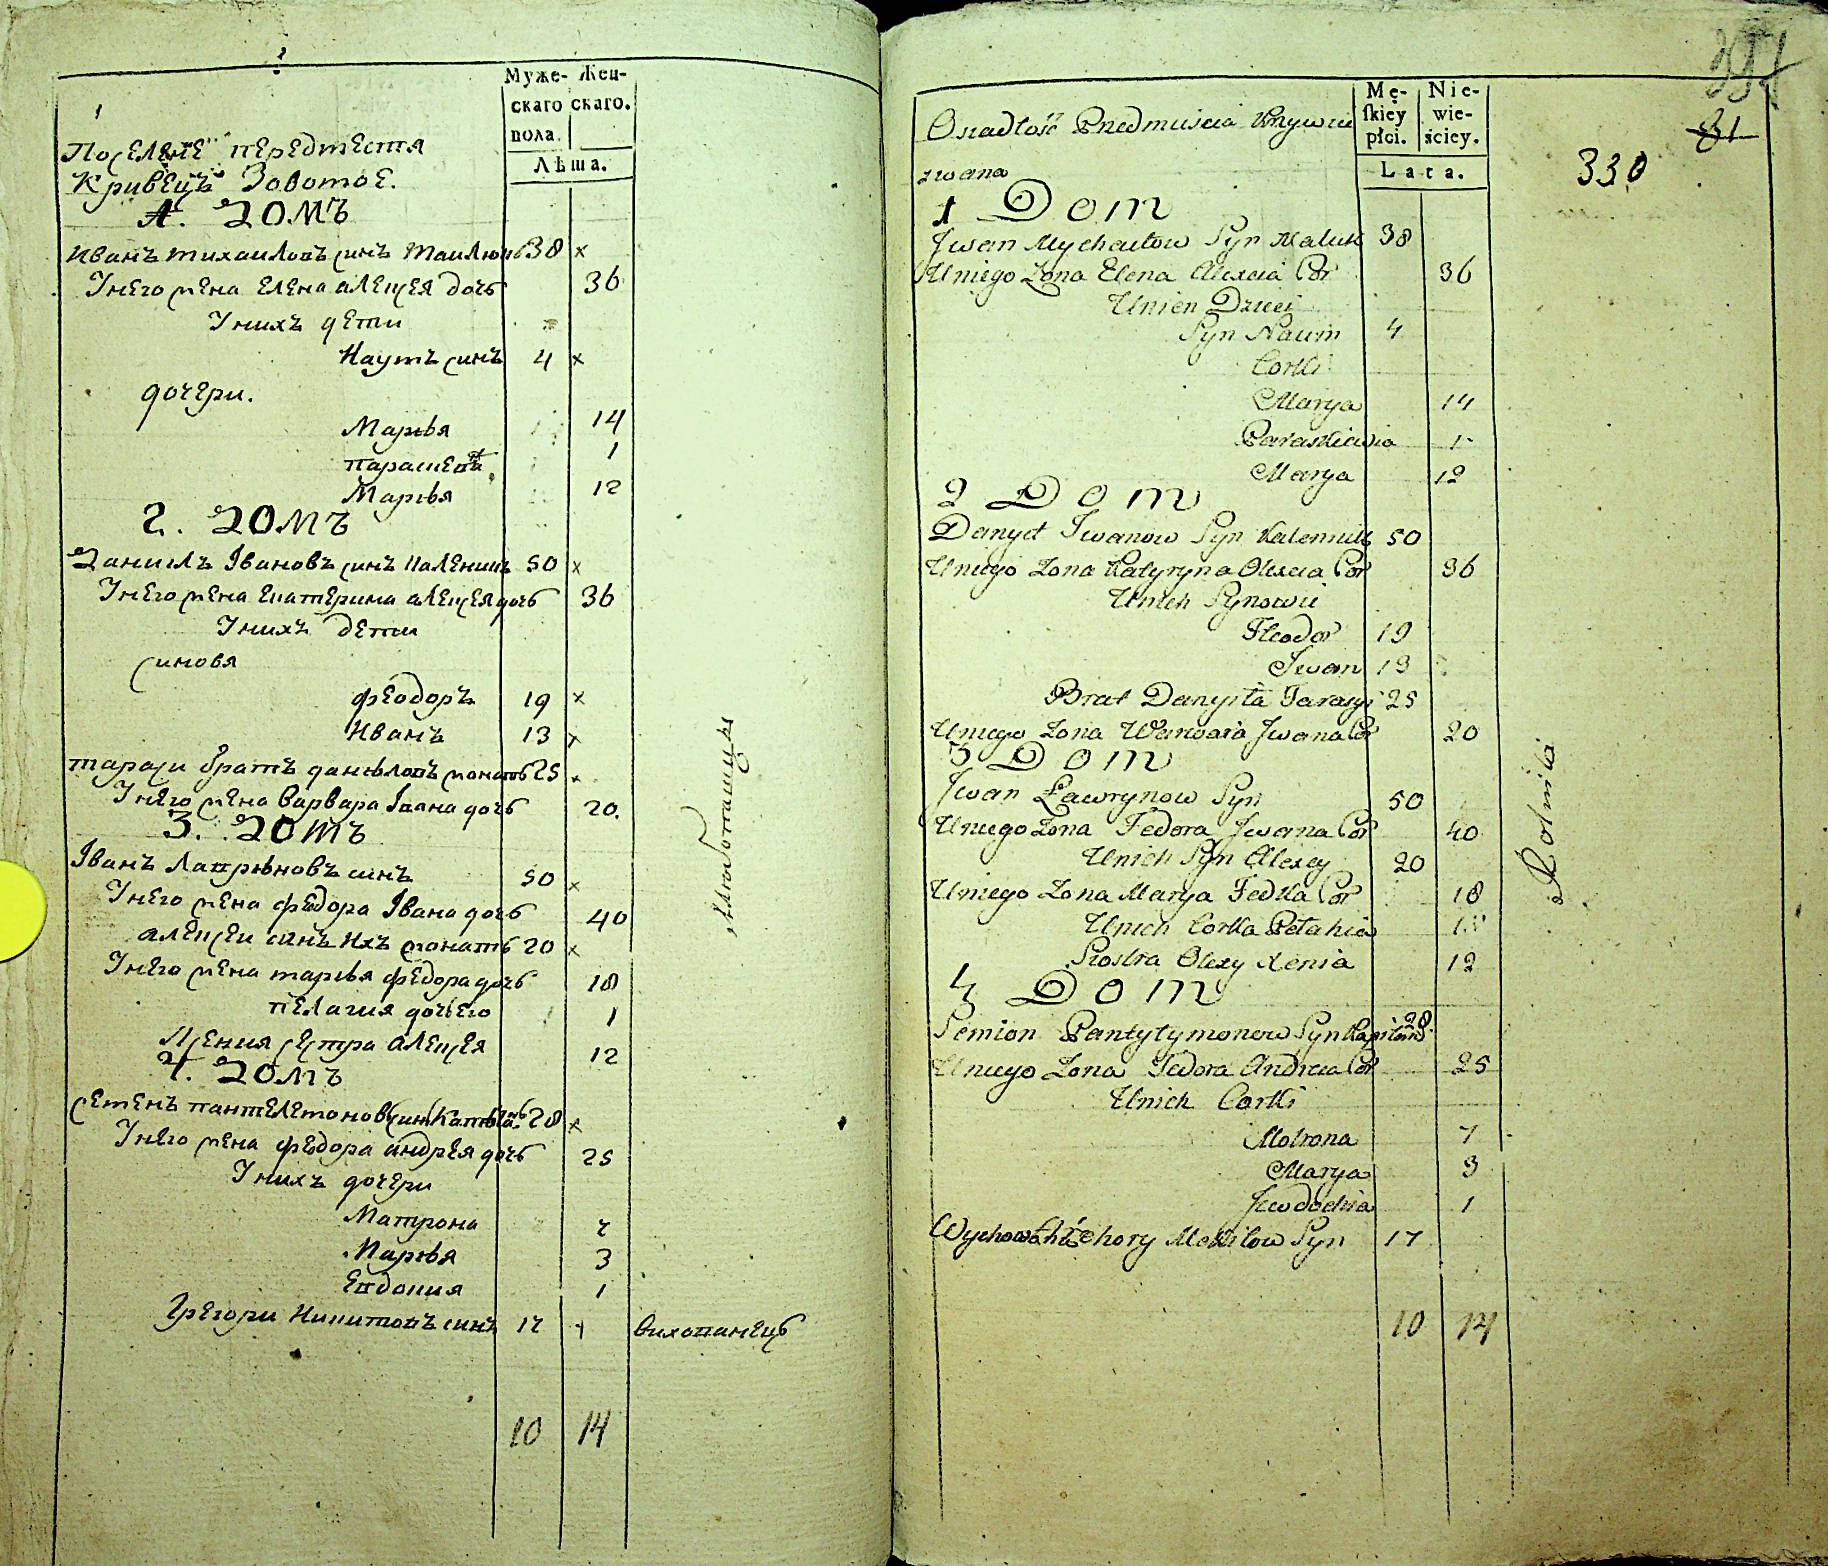 Муже- Жен-
скаго скаго.
пола.
Лѣта.
Поселение передместя
Кривецъ Зовотое.
1. Домъ
Иванъ Михаиловъ синъ 38 ×
У него жена Елена Алексея дочь 36
У нихъ дети
Наумъ синъ 4 ×
дочери.
Марья 14
Параскевия 1
Марья 12
2. Домъ
Данилъ Івановъ синъ Каленикъ 50 ×
У него жена Екатерина Алексея дочь 36
У нихъ дети
синовя
Феодоръ 19 ×
Иванъ 13 ×
Тараси братъ Даниловъ женатъ 25 ×
У него жена Варвара Івана дочь 20.
3. Домъ
Іванъ Лаврѣновъ синъ 50 ×
У него жена Федора Івана дочь 40
Алексеи синъ ихъ женатъ 20 ×
У него жена Марья Федора дочь 18
Пелагия дочь его 1
Ксения сестра Алексея 12
4. Домъ
Семенъ Пантелемоновъ синъ 28 ×
У него жена Федора Андрея дочь 25
У нихъ дочери
Матрона 7
Марья 3
Евдокия 1
Грегори Никитовъ синъ 17 × вихопанецъ
10 14
Mę- Nie-
skiey wie-
płci. ściey.
Lata.
Osadłość Przdmieścia Krzywca
zwana
1 Dom
Jwan Mychaiłow Syn Maluk 38
U niego Zona Elena Alexeia Cor 36
U nich Dzieci
Syn Naum 4
Corki
Marya 14
Paraskiewia 1
Marya 12
2 Dom
Danył Iwanow Syn Kalennik 50
U niego Zona Katyryna Olexia Cor 36
U nich Synowie
Fteodor 19
Jwan 13
Brat Danyiła Tarasyi 25
U niego Zona Warwara Jwana Cor 20
3 Dom
Jwan Ławrynow Syn 50
U niego Zona Fedora Jwana Cor 40
U nich Syn Alexey 20
U niego Zona Marya Fedka Cor 18
U nich Corka Pełahia 1
Siostra Olexy Xenia 12
4 Dom
Semion Pantytymonow Syn Kapitan 28
U niego Zona Fedora Andreia Cor 25
U nich Corki
Motrona 7
Marya 3
Jewdochia 1
Hrehory Mekitow Syn 17
10 14
Rolniki
81
330